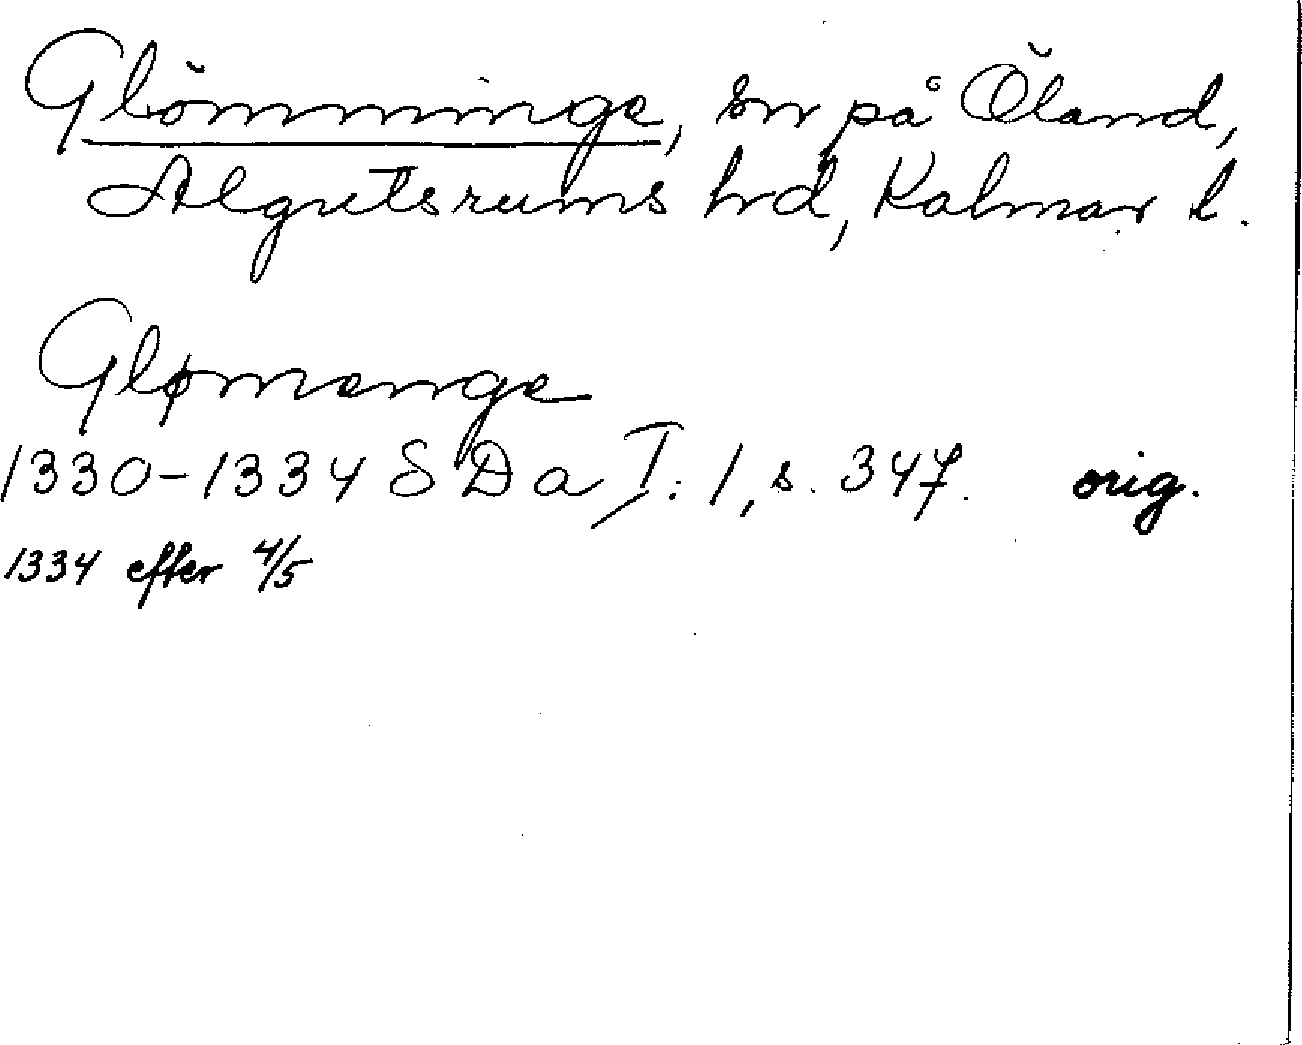 Glömminge, sn på Öland,
Algutsrums hd, Kalmar l.
Glømænge
1330-1334 SDa I:1, s. 347. orig.
1334 efter 4/5